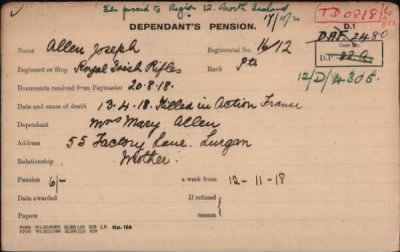 File passed to Region 12 North Ireland
17/10/20
TD0818
DEPENDANT'S PENSION.
D.1
DAF. 2480
Case No.
Name Allen Joseph Regimental No. 16/12
D.P. 82.a
Regiment or Ship Royal Irish Rifles Rank Pte
12/D/A 305.
Documents received from Paymaster 20.8.18.
Date and cause of death 13.4.18. Killed in Action France
Dependant Mrs Mary Allen
Address 55 Factory Lane. Lurgan
Relationship Mother.
Pension 6/- a week from 12-11-18
Date awarded If refused
Papers reason
Gp. 159